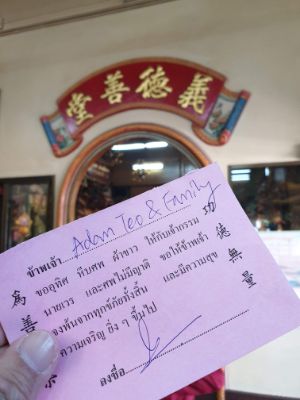 義德善堂
ข้าพเจ้า Adam Teo & Family
ขออุทิศ หีบศพ ผ้าขาว ให้กับเจ้ากรรม
นายเวร และศพไม่มีญาติ ขอให้ข้าพเจ้า
จงพ้นจากทุกข์ภัยทั้งสิ้น และมีความสุข
ความเจริญ ยิ่ง ๆ ขึ้นไป
ลงชื่อ
功德無量
為善